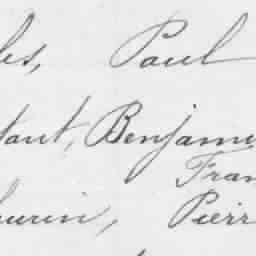 les, Paul
tant, Benjami
Fran
urin, Pierr